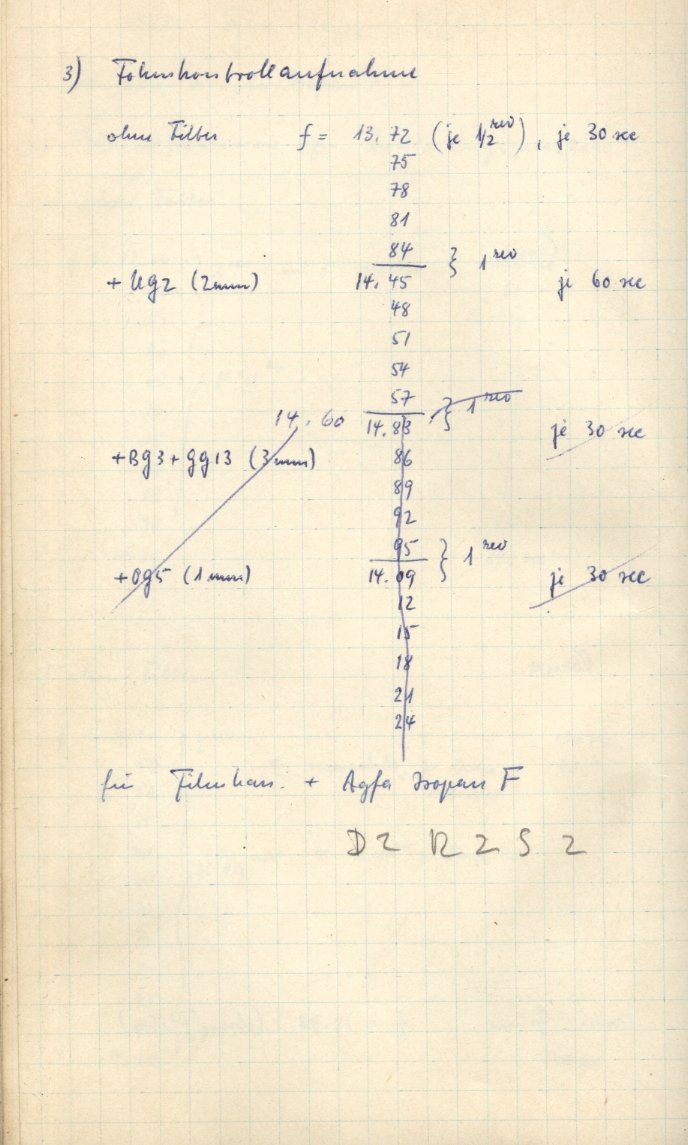 3) Fokuskontrollaufnahme
ohne Filter f = 13.72 (je 1/2 rev), je 30 sec
75
78
81
84 } 1 rev
+ Ug2 (2mm) 14.45 je 60 sec
48
51
54
57 } 1 rev
14.60 14.83 je 30 sec
+Bg3+gg13 (3mm) 86
89
92
95 } 1 rev
+Og5 (1mm) 14.09 je 30 sec
12
15
18
21
24
für Filmkas. + Agfa Isopan F
D2 R2 S 2